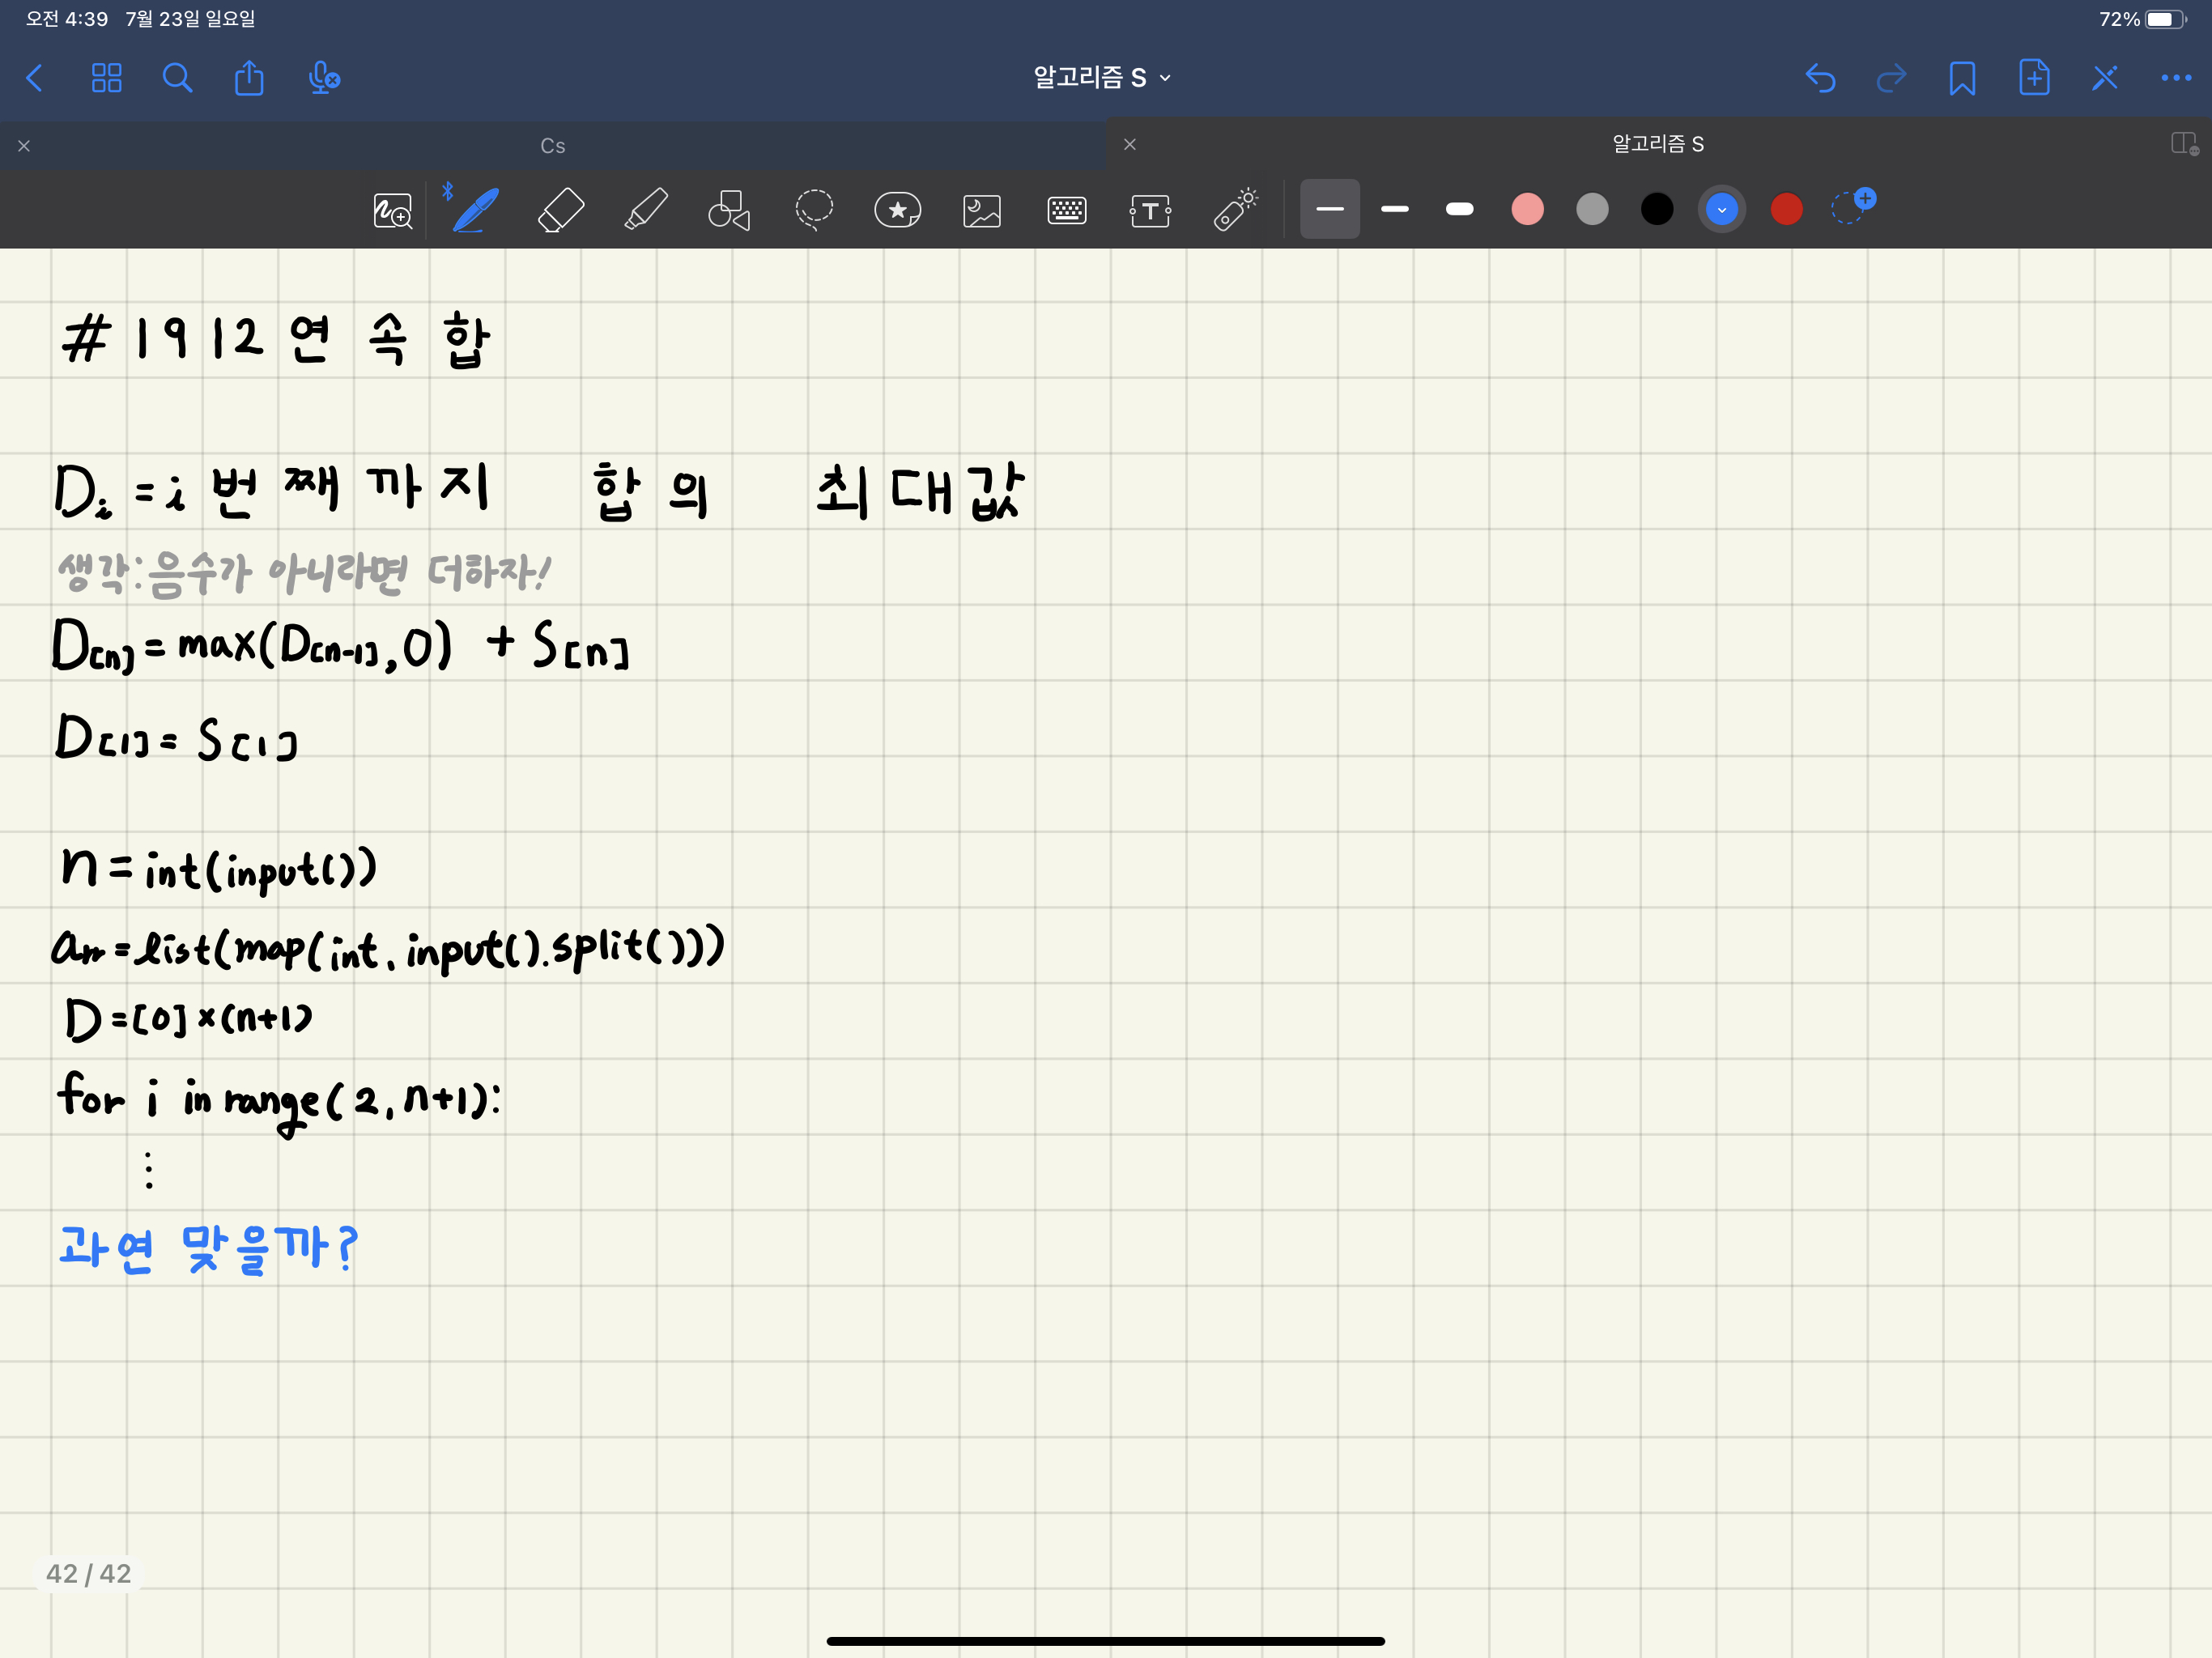 오전 4:39 7월 23일 일요일 72%
알고리즘 S
Cs 알고리즘 S
#1912 연속합
Di = i번째까지 합의 최대값
생각:음수가 아니라면 더하자!
D[n] = max(D[n-1], 0) + S[n]
D[1] = S[1]
n = int(input())
arr = list(map(int, input().split()))
D = [0] × (n+1)
for i in range(2, n+1):
⋮
과연 맞을까?
42 / 42